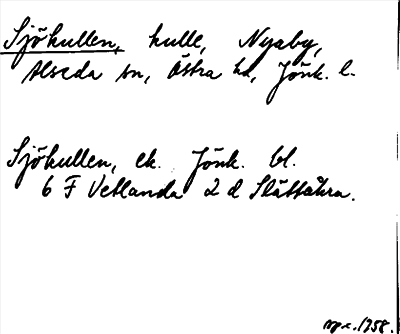 Sjökullen, kulle, Nyaby,
Alseda sn, Östra hd, Jönk. l.
Sjökullen, ek. Jönk. bl.
6 F Vetlanda 2 d Slättåkra.
1958.